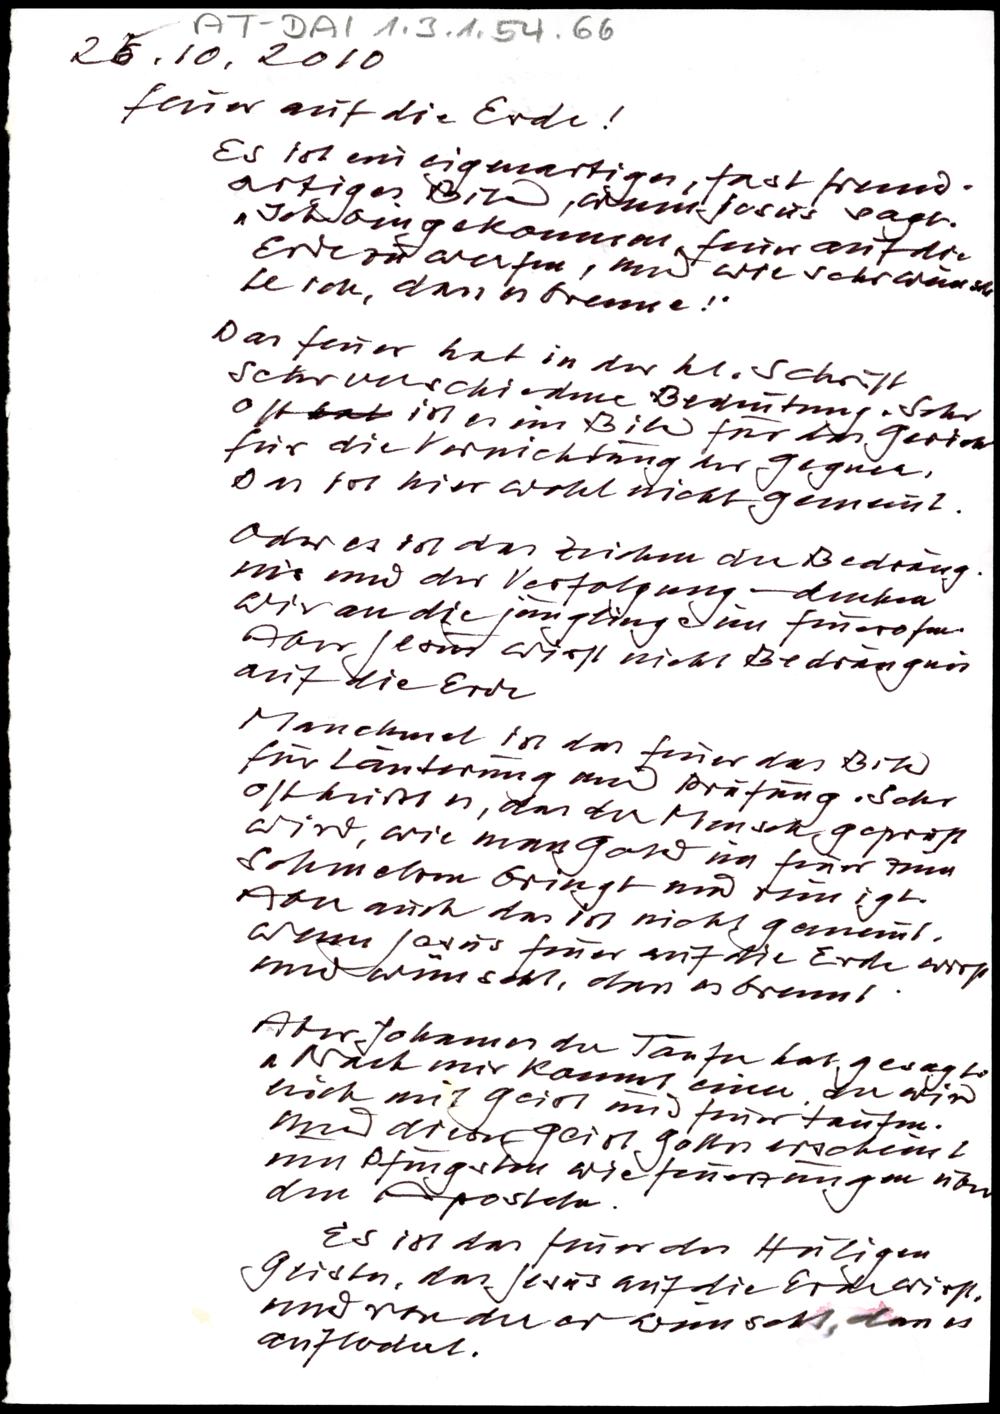 AT-DAI 1.3.1.54.66
25.10.2010
Feuer auf die Erde!
Es ist ein eigenartiges, fast fremd-
artiges Bild, wenn Jesus sagt.
"Ich bin gekommen, Feuer auf die
Erde zu werfen, und wie sehr wünsch
te ich, dass es brenne!"
Das Feuer hat in der hl. Schrift
sehr verschiedene Bedeutung. Sehr
oft hat ist es ein Bild für das Gericht
für die Vernichtung der Gegner.
Das ist hier wohl nicht gemeint.
Oder es ist das Zeichen der Bedräng-
nis und der Verfolgung - denken
wir an die Jünglinge im Feuerofen.
Aber Jesus wirft nicht Bedrängnis
auf die Erde
Manchmal ist das Feuer das Bild
für Läuterung und Prüfung. Sehr
oft heisst es, dass der Mensch geprüft
wird, wie man Gold im Feuer zum
Schmelzen bringt und reinigt.
Aber auch das ist nicht gemeint.
wenn Jesus Feuer auf die Erde wirft
und wünscht, dass es brennt.
Aber Johannes der Täufer hat gesagt:
"Nach mir kommt einer, der wird
euch mit Geist und Feuer taufen.
Und dieser Geist Gottes erscheint
zu Pfingsten wie Feuerzungen über
den Aposteln.
Es ist das Feuer des Heiligen
Geistes, das Jesus auf die Erde wirft,
und von dem er wünscht, dass es
auflodert.